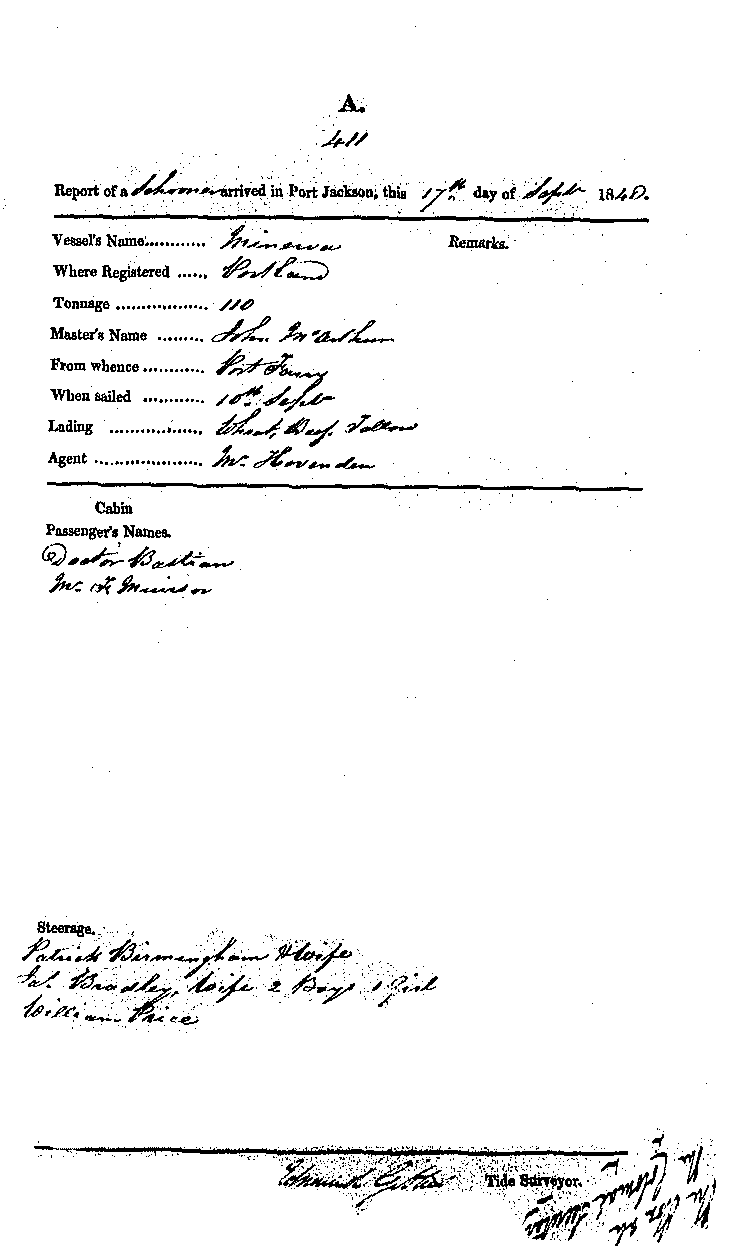 A.
411
Report of a Schooner arrived in Port Jackson, this 17th day of Septr 1848.
Vessel's Name........... Minerva Remarks.
Where Registered ...... Portland
Tonnage .................. 110
Master's Name ......... John McArthur
From whence ............ Port Fairy
When sailed ............ 10th Septr
Lading .................. Wheat, Beef. Tallow
Agent ..................... Mr. Hovenden
Cabin
Passenger's Names.
Doctor Bastian
Mr
Steerage.
Patrick Birmingham & Wife
Jas. Bradley, Wife 2 Boys 1 Girl
William Price
Tide Surveyor.
The Hon. the
The Colonial Secretary